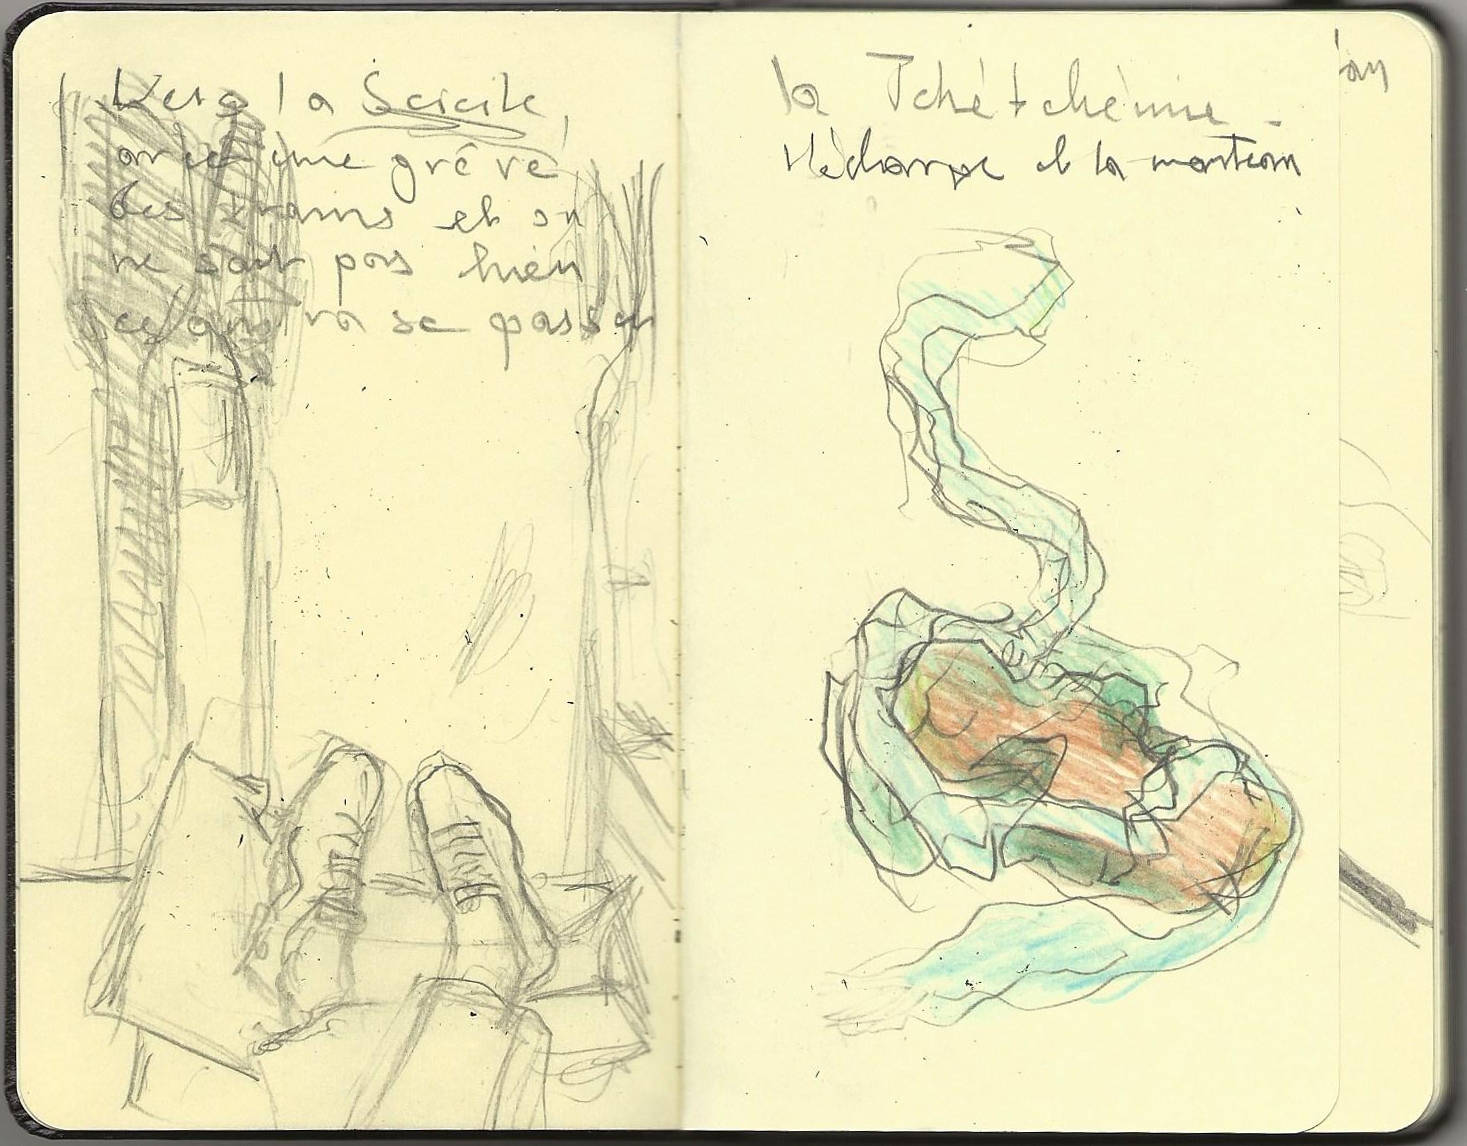 Vers la Scicile,
avec une grève
des trains et on
ne sait pas bien
ce qui va se passer
la Tchétchènie -
l'écharpe et la